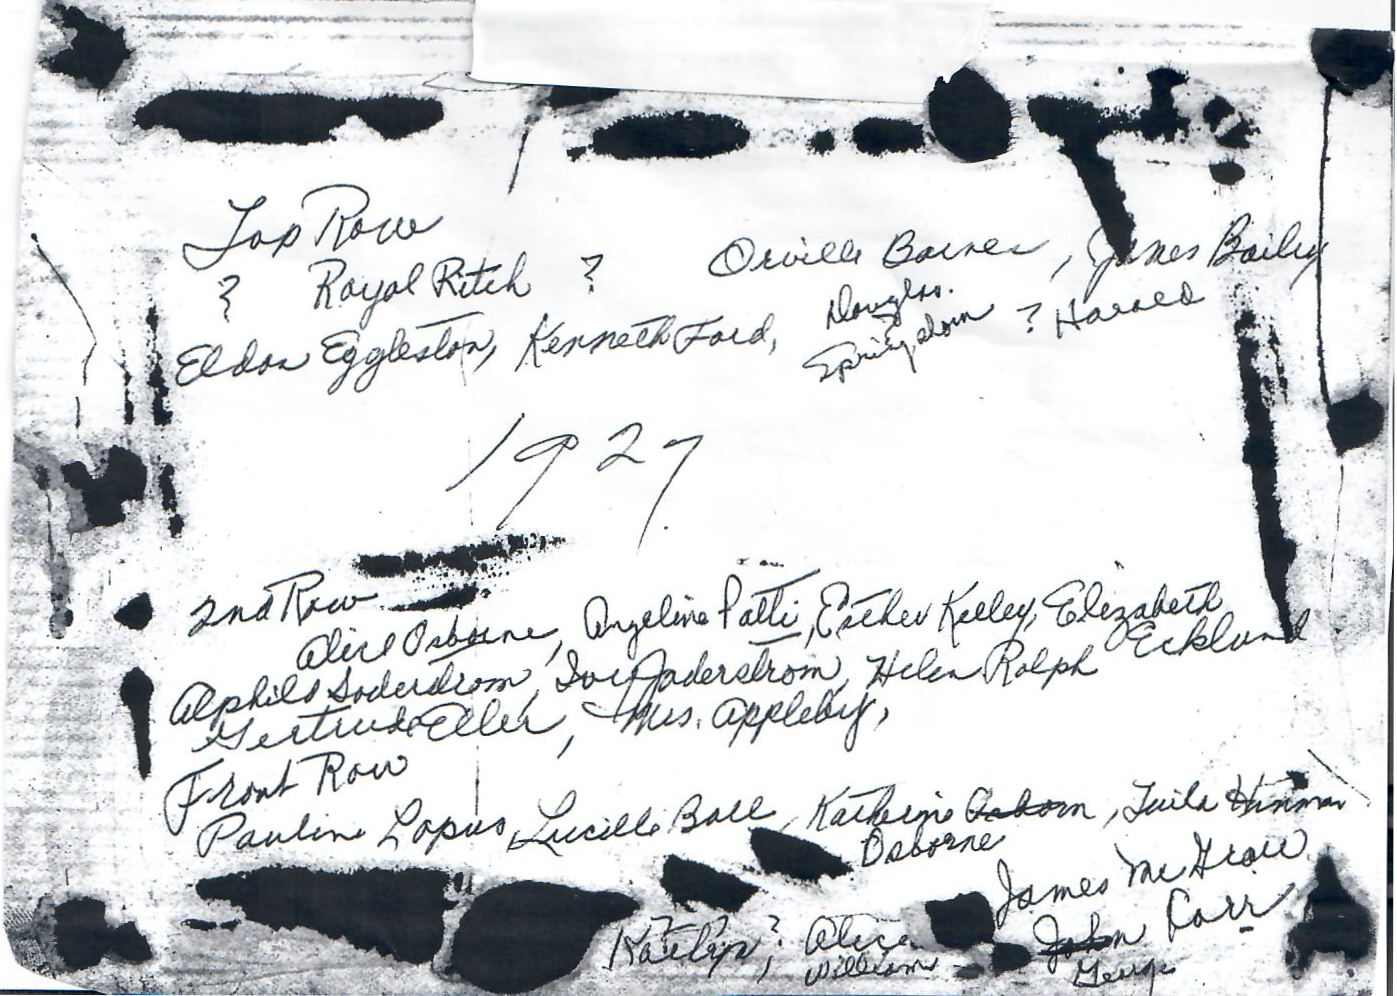 Top Row
? Royal Ritch ? Orville Barnes, James Bailey
Eldon Eggleston, Kenneth Ford, Douglas. Springshorn ? Harold
1927
2nd Row
Alice Osborne, Angeline Patti, Esther Kelley, Elizabeth Ecklund
Alphild Soderstrom, Soderstrom, Helen Ralph
Gertrude Eller, Mrs. Appleby,
Front Row
Pauline Lopus, Lucille Ball, Katherine Osborn, Tuila Hinman
Osborne
James McGraw
Katelyn?, Alice John Carr
William George